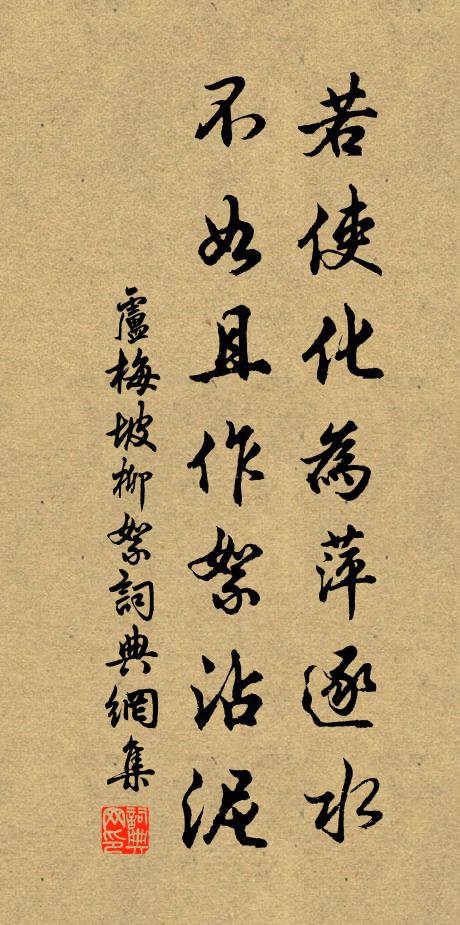 若使化為萍逐水
不如且作絮沾泥
盧梅坡柳絮詞典網集
詞典网印